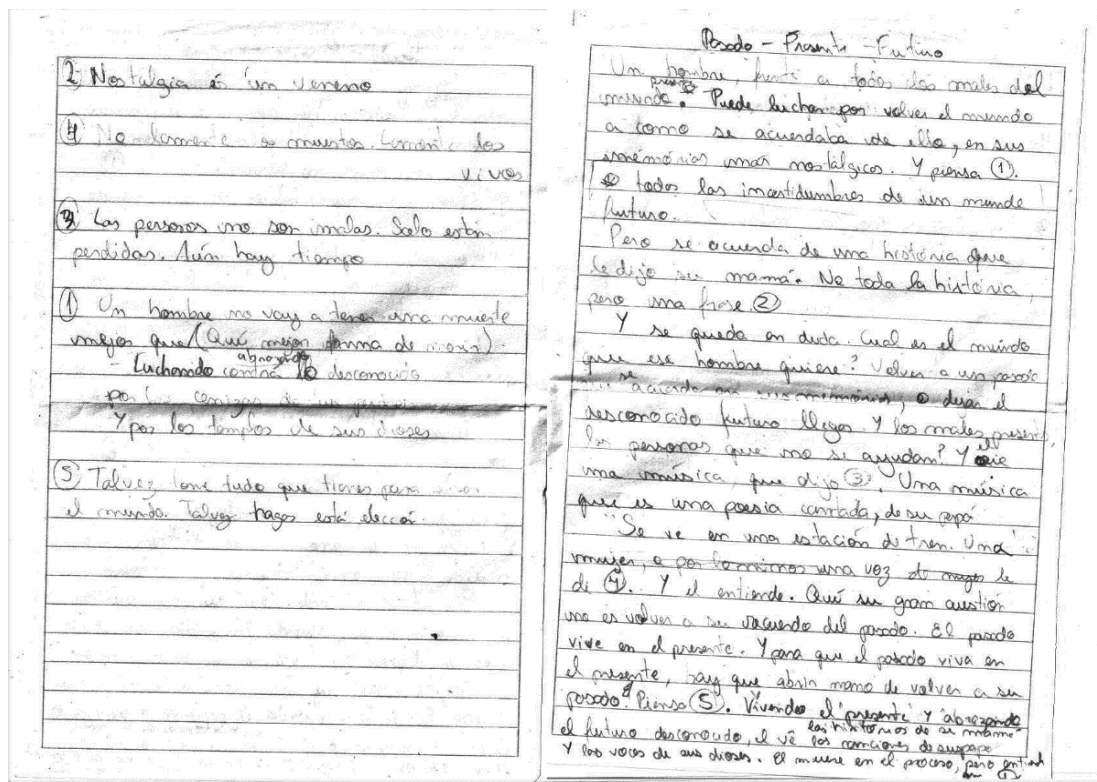 ② Nostálgia és un veneno
④ No lamente los muertos. Lamente los
vivos
③ Las personas no son malas. Solo están
perdidas. Aún hay tiempo
① Un hombre no vay a tener una muerte
mejor que/(Qué mejor forma de morir)
- Luchando contra abrazando lo desconocido
por las cenizas de
Y por los templos de sus dioses
⑤ Talvez tome tudo que tienes para
el mundo. Talvez hagas está
Pasado - Presente - Futuro
Un hombre, frente a todos los males del
mundo presente. Puede luchar por volver el mundo
a como se acuerdaba de ello, en sus
memórias mas nostálgicas. Y piensa ①.
todas las incertidumbres de un mundo
futuro.
Pero se acuerda de una história que
le dijo su mamá. No toda la história,
pero una frase ②
Y se queda en duda. Cual es el mundo
que ese hombre quiere? Volver a un pasado
que se acuerda en sus memórias, o dejar el
desconocido futuro llegar. Y los males presente,
las personas que no se ayudan? Y el
una música, que dijo ③. Una música
que es una poesia cantada, de su papá
Se ve en una estación de tren. Una
mujer, a por una voz de le
di ④. Y el entiende. Qué su gran cuestión
no es volver a su recuerdo del pasado. El pasado
vive en el presente. Y para que el pasado viva en
el presente, hay que abrir mano de volver a su
pasado. Piensa ⑤. Viviendo el presente y abrazando
el futuro desconocido, el vê las histórias de su mamá las canciones de su papá
Y las voces de sus dioses. El muere en el proceso, pero entiende
①